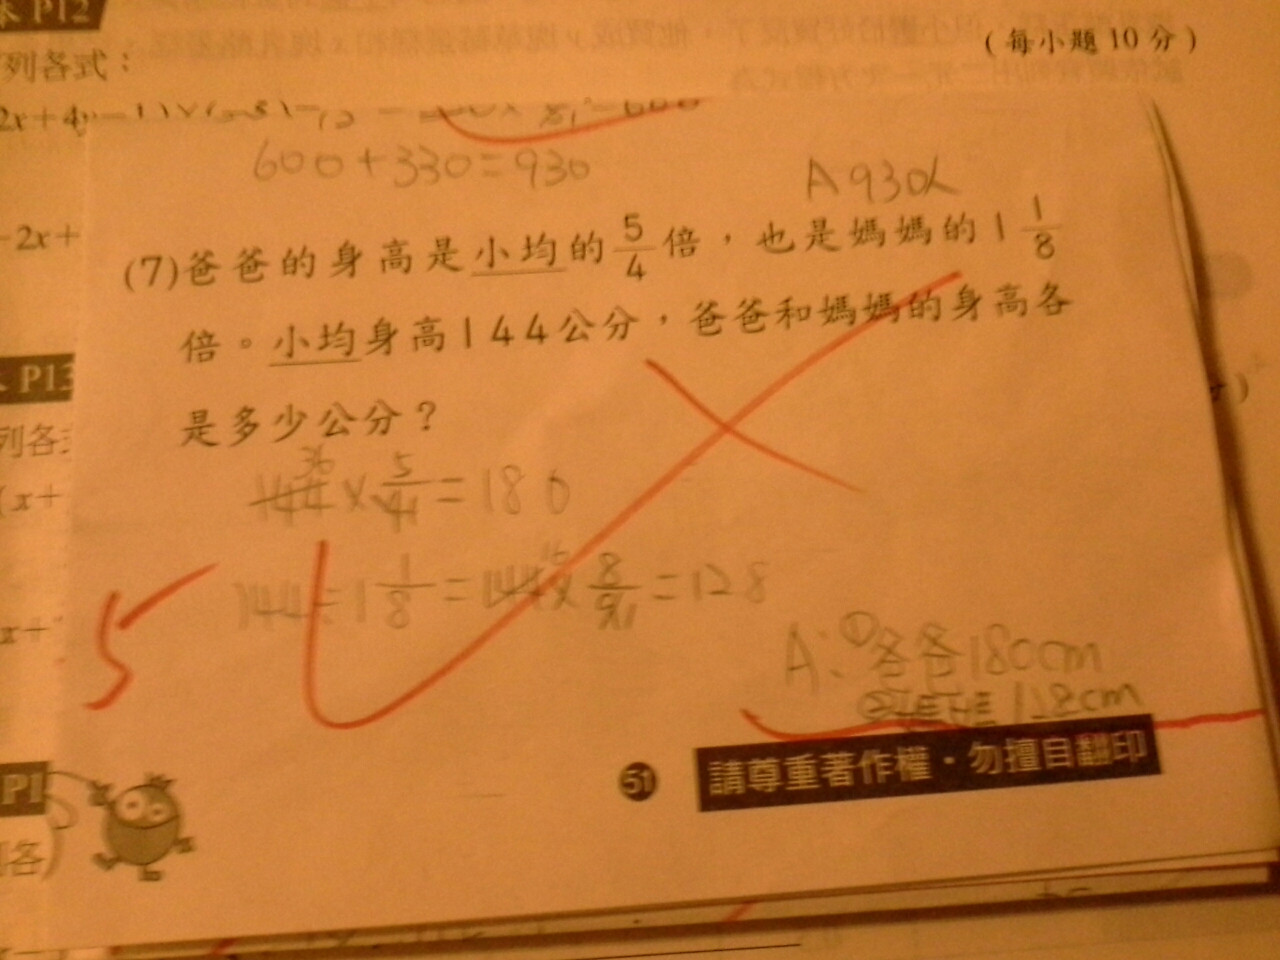 本 P12
(每小題10分)
列各式：
600+330=930
A 930人
-2x+
(7)爸爸的身高是小均的5/4倍，也是媽媽的1 1/8
倍。小均身高144公分，爸爸和媽媽的身高各
是多少公分？
P13
列各式
(x+
36
144×5/4=180
1
16
144÷1 1/8=144×8/9=128
1
5
x+
A:①爸爸180cm
②媽媽128cm
51
請尊重著作權·勿擅自翻印
P1